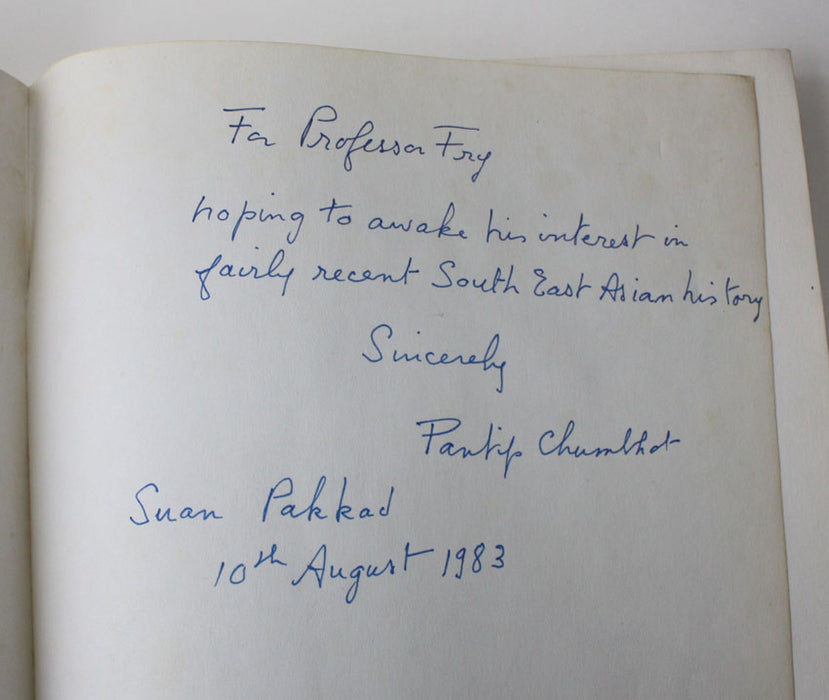 For Professor Fry
hoping to awake his interest in
fairly recent South East Asian history
Sincerely
Pantip Chumbhot
Suan Pakkad
10th August 1983